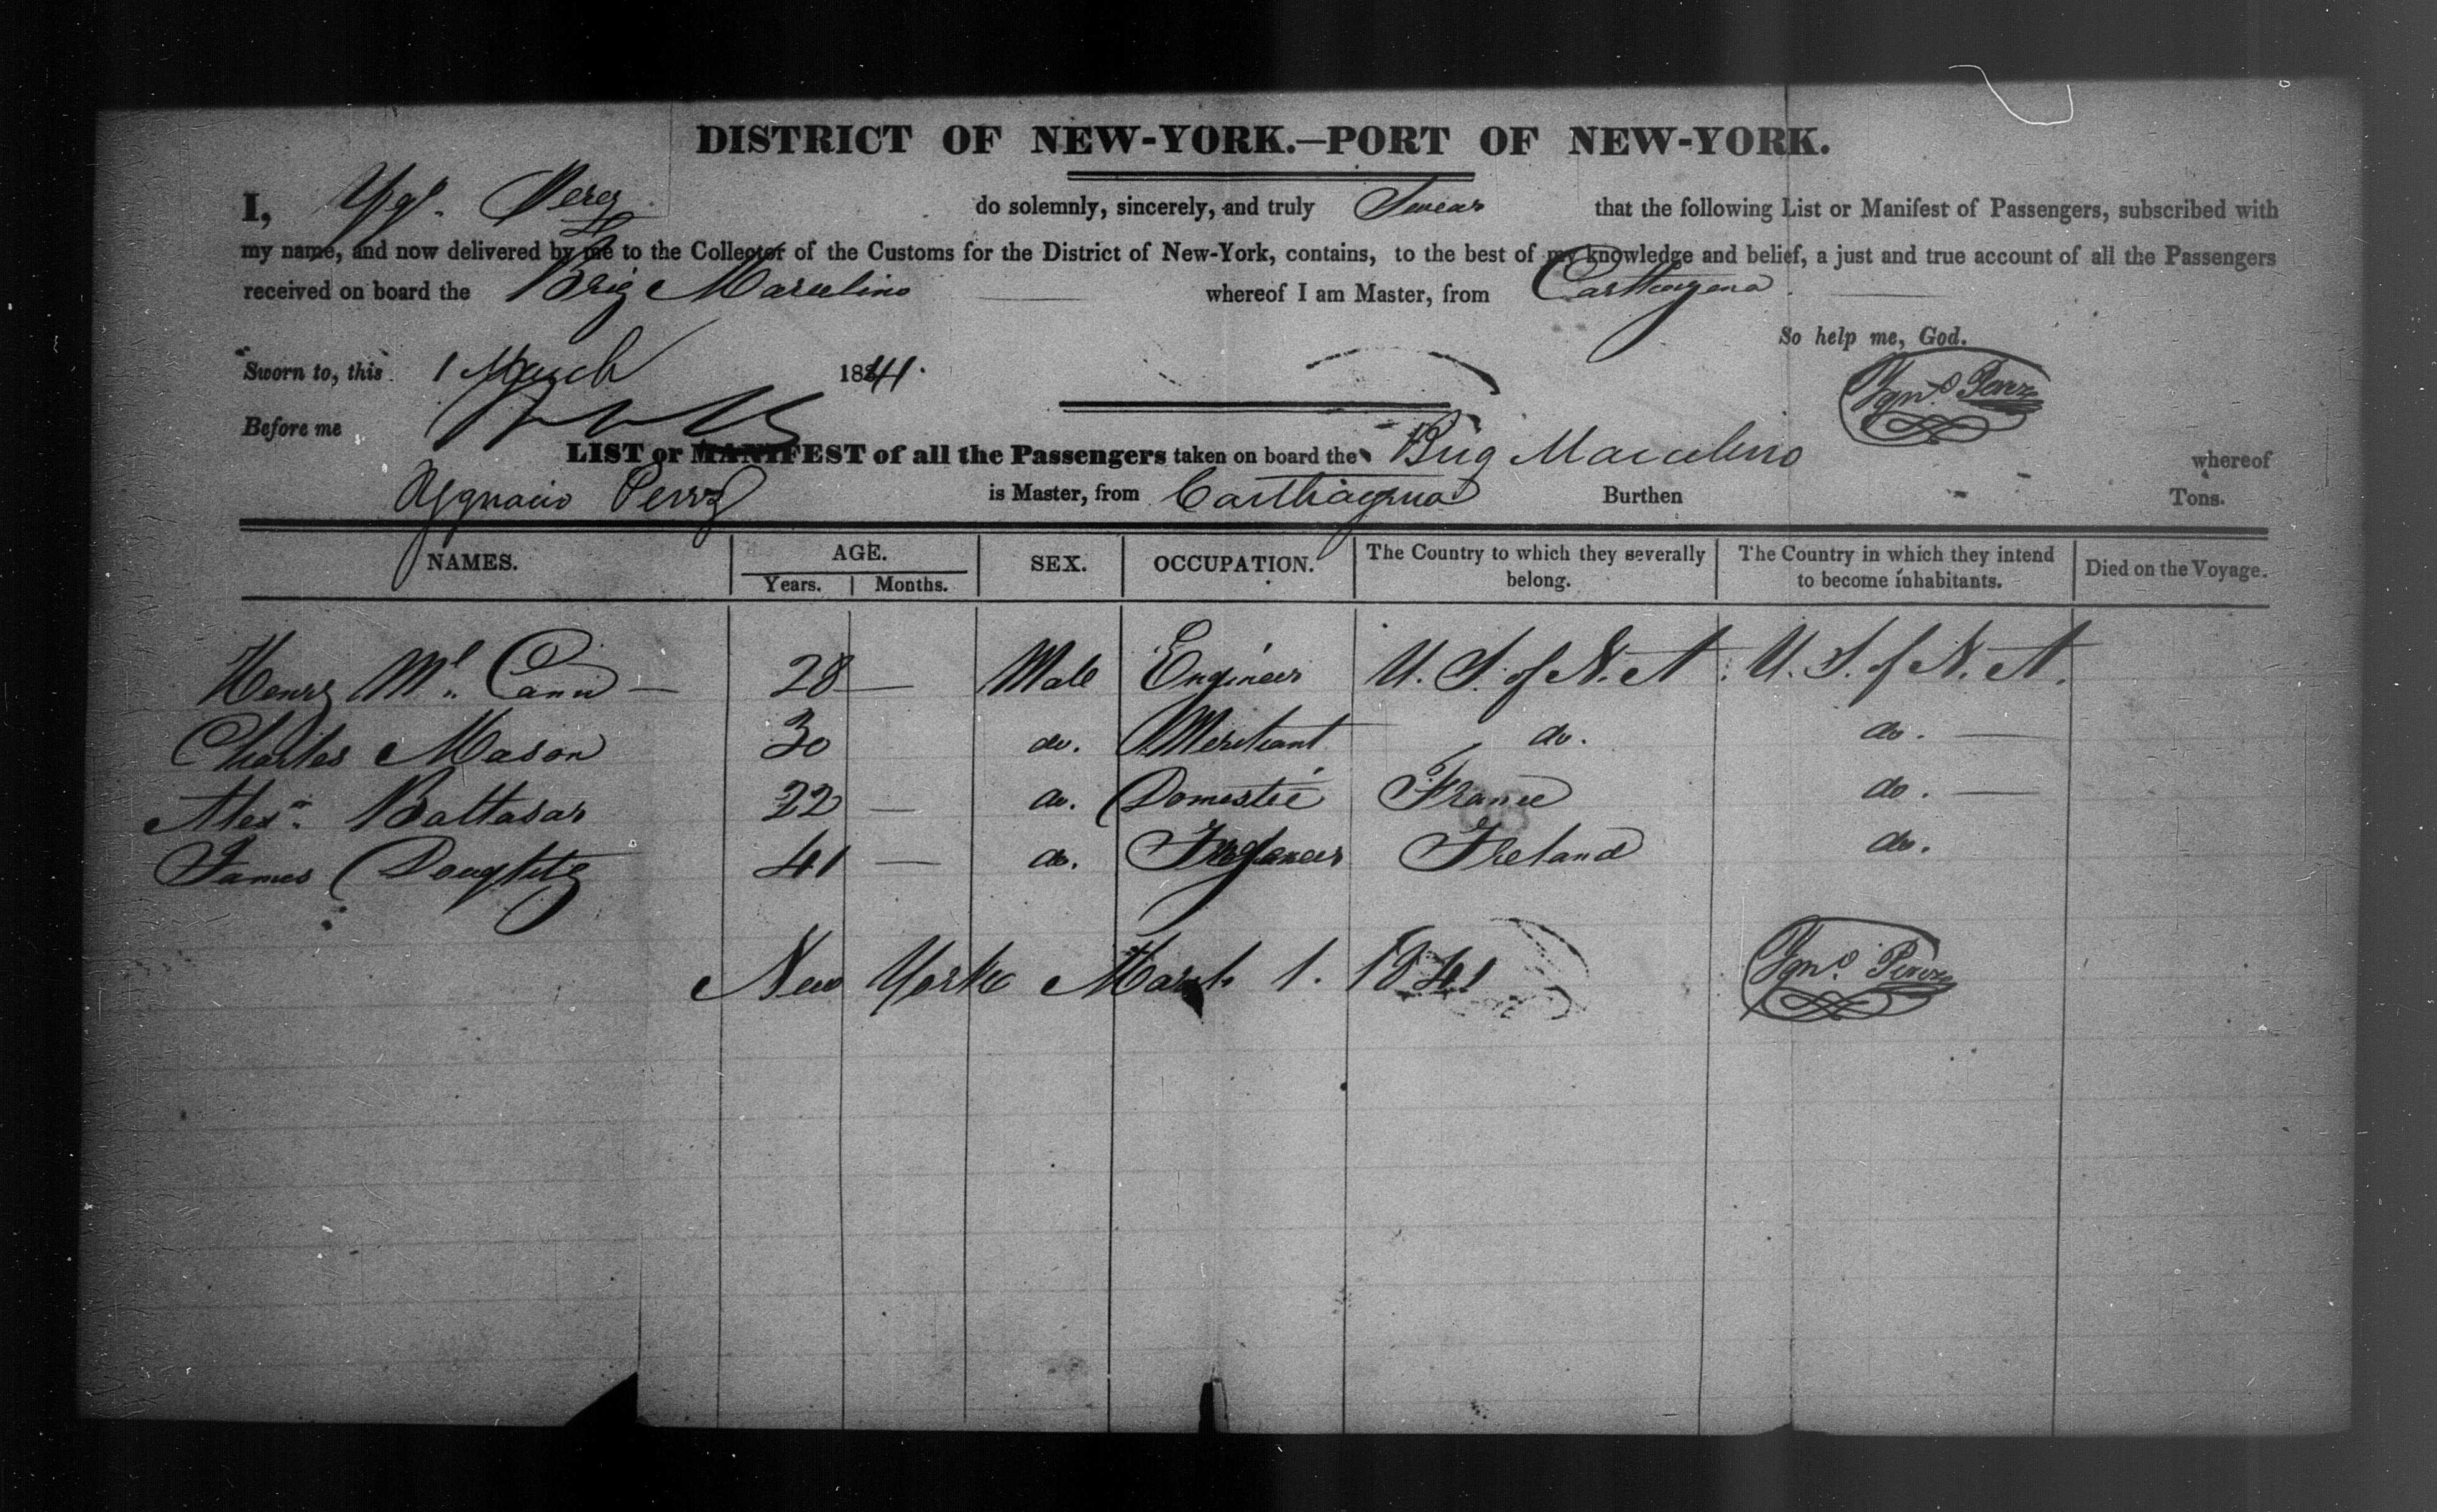 DISTRICT OF NEW-YORK.—PORT OF NEW-YORK.
I, Ygo. Perez do solemnly, sincerely, and truly Swear that the following List or Manifest of Passengers, subscribed with
my name, and now delivered by me to the Collector of the Customs for the District of New-York, contains, to the best of my knowledge and belief, a just and true account of all the Passengers
received on board the Brig Marcelino whereof I am Master, from Carthagena.
So help me, God.
Sworn to, this 1 March 1841.
Ygno. Perez
Before me
LIST or MANIFEST of all the Passengers taken on board the Brig Marcelino whereof
Ygnacio Perez is Master, from Carthagena Burthen Tons.
NAMES. AGE. SEX. OCCUPATION. The Country to which they severally belong. The Country in which they intend to become inhabitants. Died on the Voyage.
Years. Months.
Henry Mc. Cann — 28 — Male Engineer U. S. of N. A. U. S. of N. A.
Charles Mason 30 do. Merchant do. do. —
Alexr. Baltasar 22 — do. Domestic France do. —
James Doughty 41 — do. Ireland do.
New York March 1. 1841 Ygno. Perez